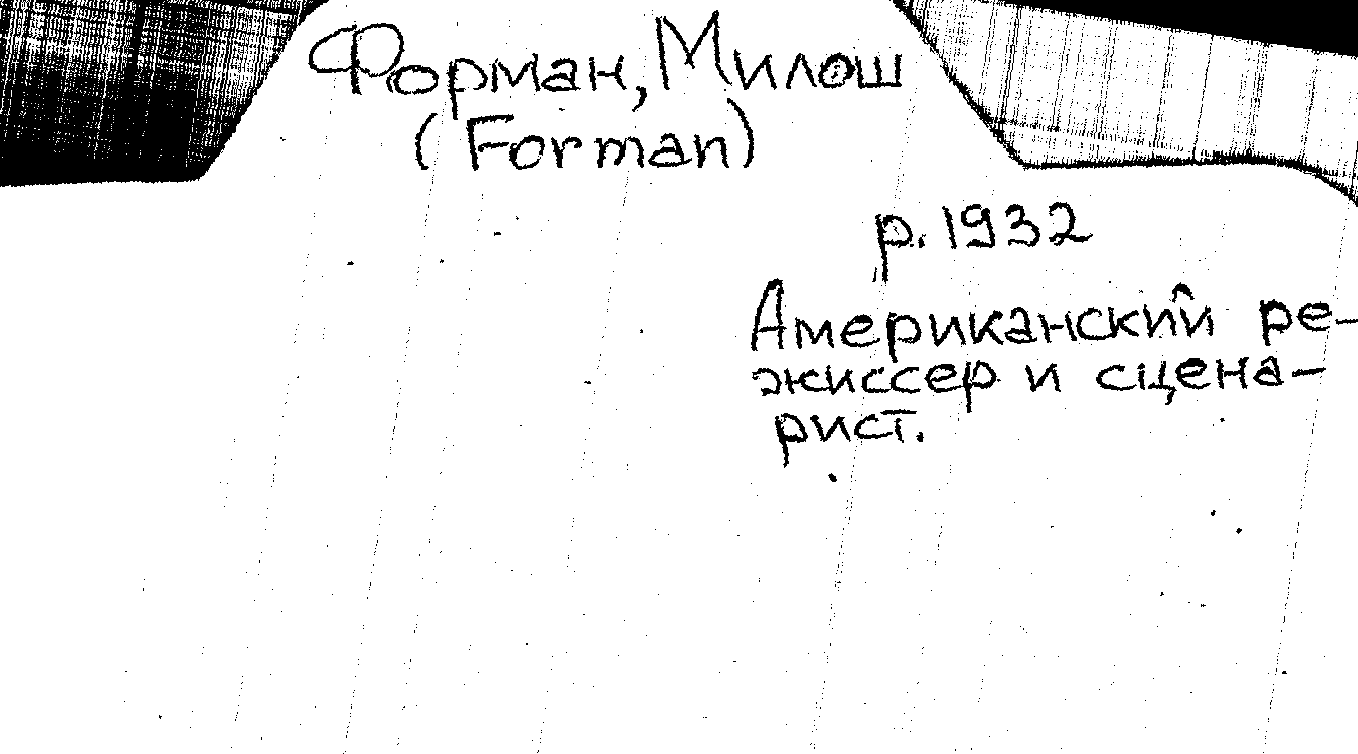 Форман, Милош
(Forman)
р. 1932
Американский ре-
жиссер и сцена-
рист.